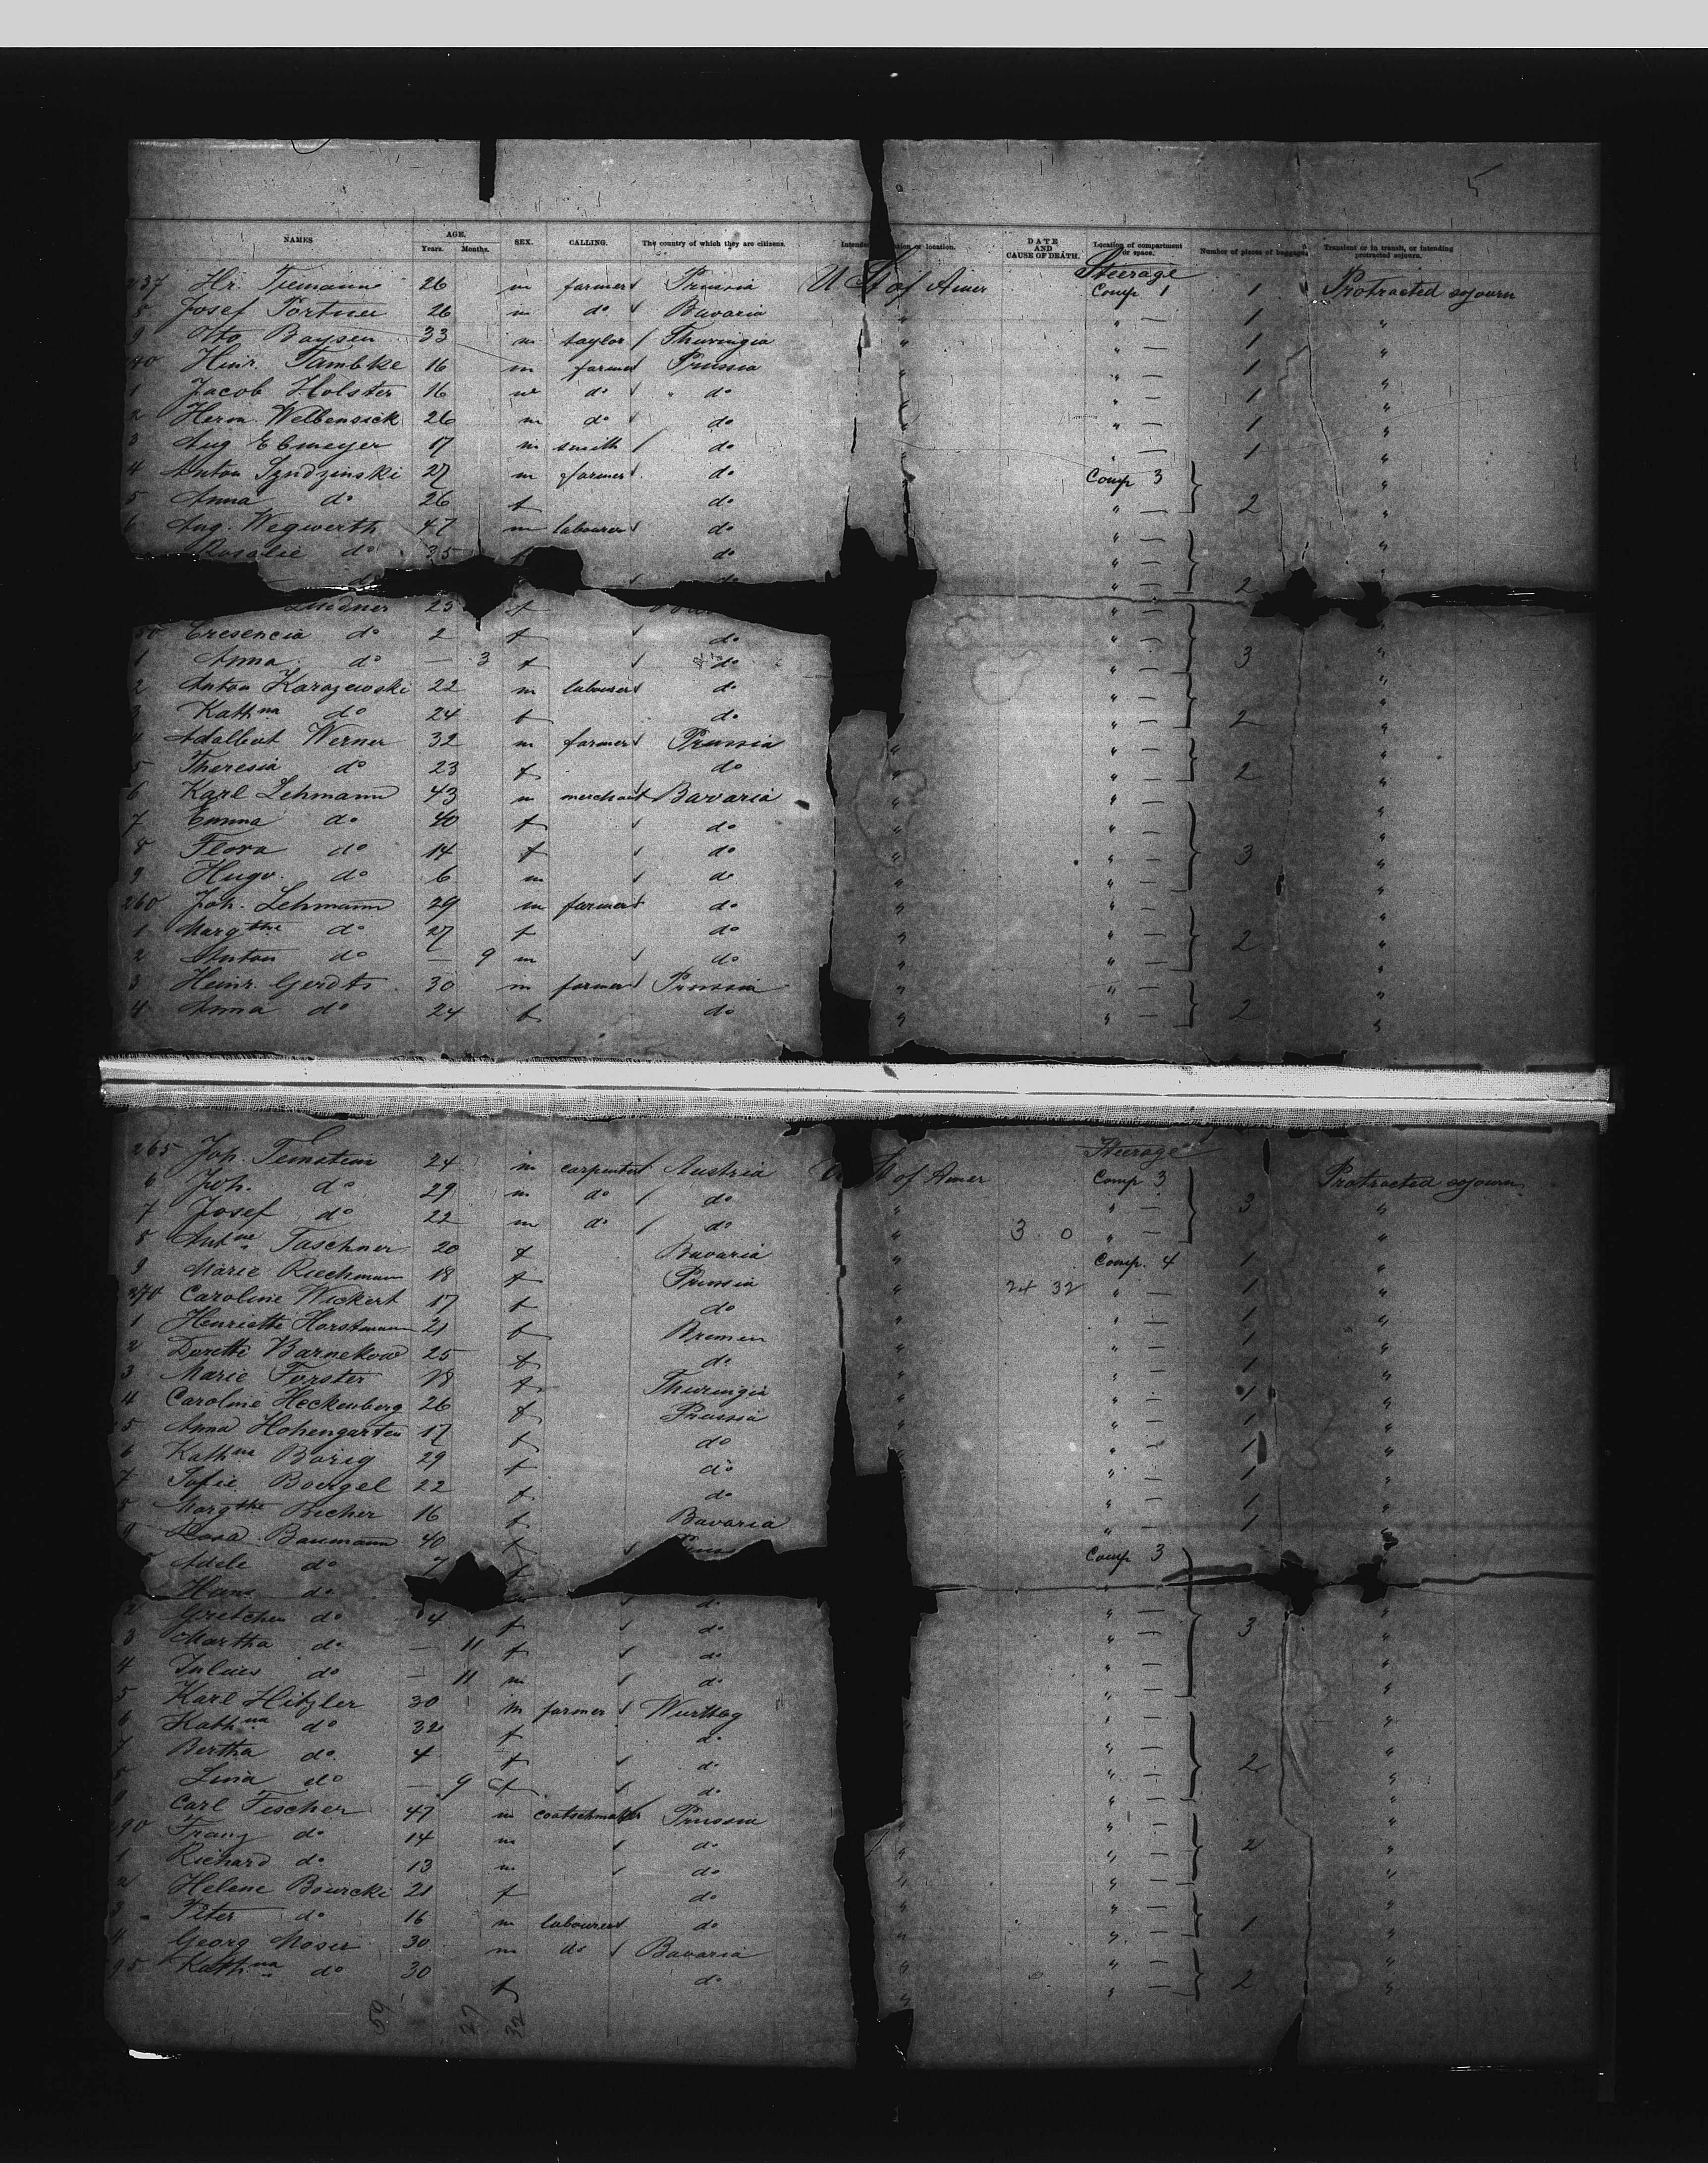 5
NAMES AGE. Years. Months. SEX. CALLING. The country of which they are citizens. DATE AND CAUSE OF DEATH. Location of compartment or space. Number of pieces of baggage. Transient or in transit, or intending protracted sojourn.
Steerage
237 Hr. Tiemann 26 m farmer Prussia U St of Amer Comp 1 1 Protracted sojourn
8 Josef Portner 26 m do Bavaria " " — 1 "
9 Otto Boysen 33 m taylor Thuringia " " — 1 "
40 Heinr. Tambke 16 m farmer Prussia " " — 1 "
1 Jacob Holster 16 m do do " " — 1 "
2 Herm. Welbensick 26 m do do " " — 1 "
3 Aug Ebmeyer 17 m smith do " " — 1 "
4 Anton 27 m farmer do " Comp 3 "
5 Anna do 26 f do " — 2 "
6 Aug. Wegwerth 47 m labourer do " — "
Rosalie do 35 f do " — "
do do " — 2
Lindner 25 f " —
50 Cresencia do 2 f do " — "
1 Anna do — 3 f do " — 3 "
2 Anton Karazewski 22 m labourer do " — "
3 Kathna do 24 f do " — 2 "
4 Adalbert Werner 32 m farmer Prussia " " — "
5 Theresia do 23 f do " " — 2 "
6 Karl Lehmann 43 m merchant Bavaria " " — "
7 Emma do 40 f do " " — "
8 Flora do 14 f do " " — 3 "
9 Hugo do 6 m do " " — "
260 Joh. Lehmann 29 m farmer do " " — "
1 Margthe do 27 f do " " — 2 "
2 Anton do — 9 m do " " — "
3 Heinr. Gerdts 30 m farmer Prussia " " — "
4 Anna do 24 f do " " — 2 "
Steerage
265 Joh. 24 m carpenter Austria St of Amer Comp 3 Protracted sojourn
6 Joh. do 29 m do do " " — 3 "
7 Josef do 22 m do do " 3 0 " — "
8 Antne Taschner 20 f Bavaria " Comp. 4 1 "
9 Marie Riechmann 18 f Prussia " 24 32 " — 1 "
270 Caroline Wickert 17 f do " " — 1 "
1 Henriette Horstmann 21 f Bremen " " — 1 "
2 Dorette Barnekow 25 f do " " — 1 "
3 Marie Forster 18 f Thuringia " " — 1 "
4 Caroline Heckenberg 26 f Prussia " " — 1 "
5 Anna Hohengarten 17 f do " " — 1 "
6 Kathne Borig 29 f do " — 1 "
7 Sofie Boergel 22 f do " — 1 "
8 Margthe Becher 16 f Bavaria " — 1 "
9 Rosa Baumann 40 f Comp 3
Adele do 7 f "
Hans do do " — "
2 Gretchen do 4 f do " — 3 "
3 Martha do — 11 f do " — "
4 Julius do — 11 m do " — "
5 Karl Hitzler 30 m farmer Wurtbg " — "
6 Kathna do 32 f do " — "
7 Bertha do 4 f do " — 2 "
8 Lina do — 9 f do " — "
9 Carl Fischer 47 m coatschmaker Prussia " — "
290 Franz do 14 m do " " — 2 "
1 Richard do 13 m do " " — "
2 Helene Bourcki 21 f do " " — "
3 Peter do 16 m labourer do " " — 1 "
4 Georg Moser 30 m do Bavaria " " — "
95 Kathna do 30 f do " " — 2 "
59 27 32